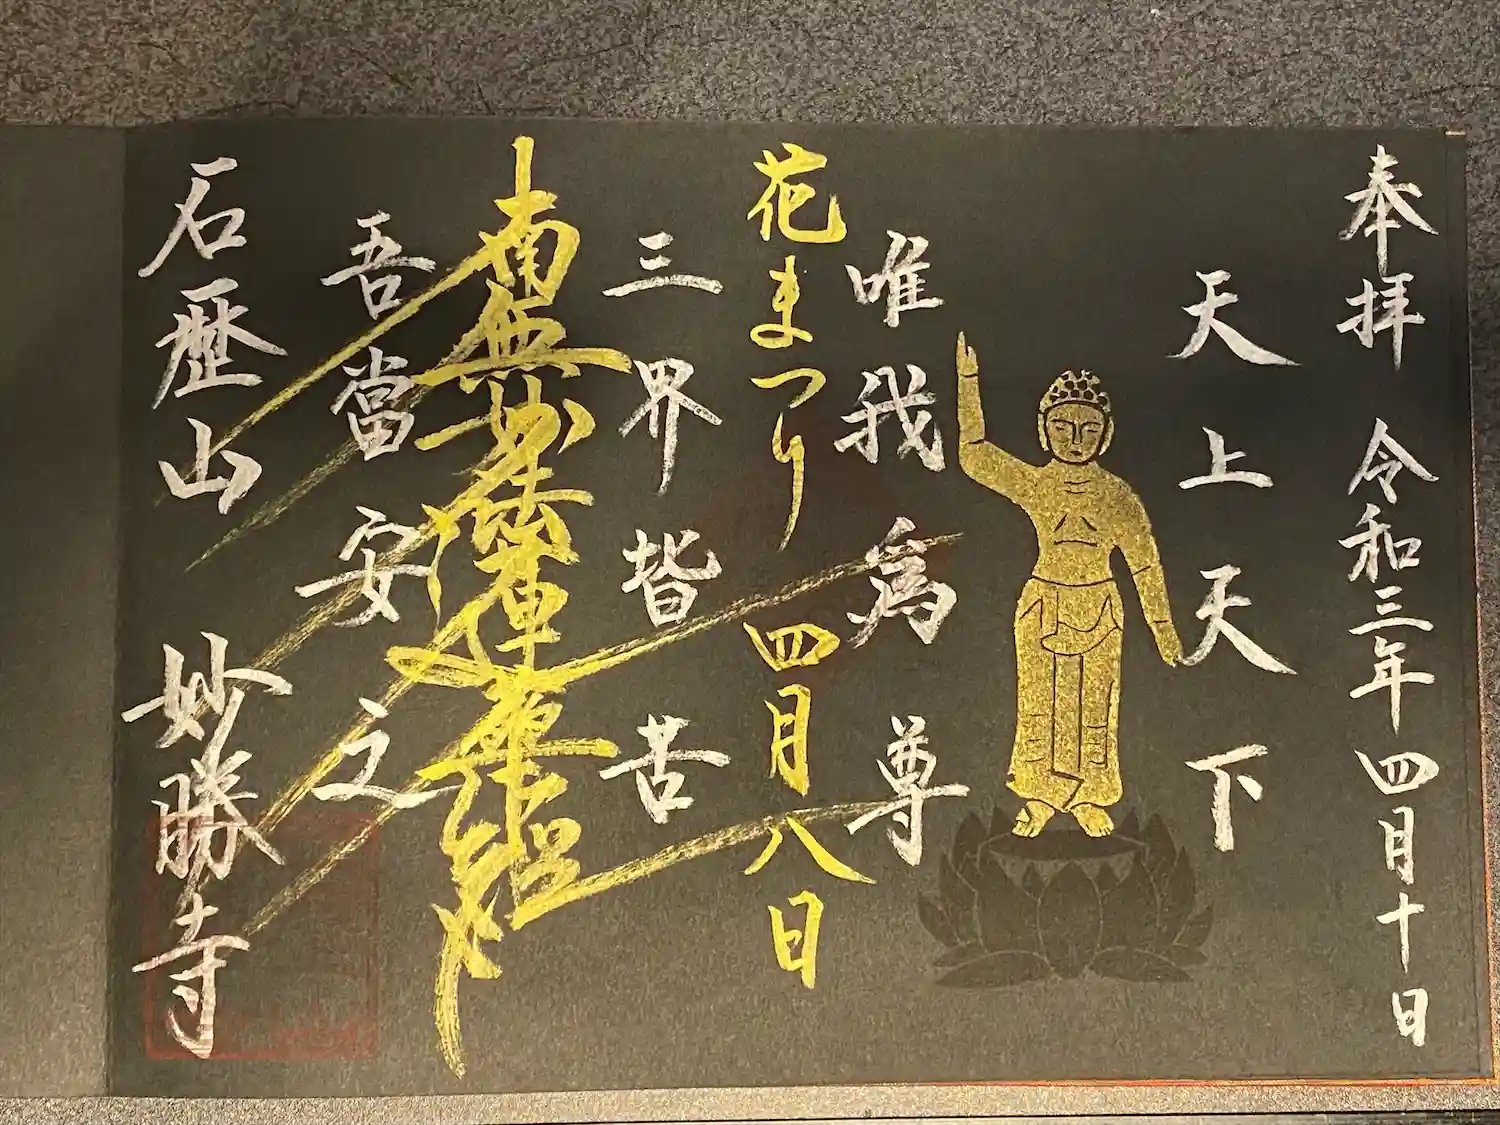 奉拝 令和三年四月十日
天上天下
唯我為尊
花まつり 四月八日
三界皆苦
南無妙法蓮華経
吾當安之
石歴山 妙勝寺